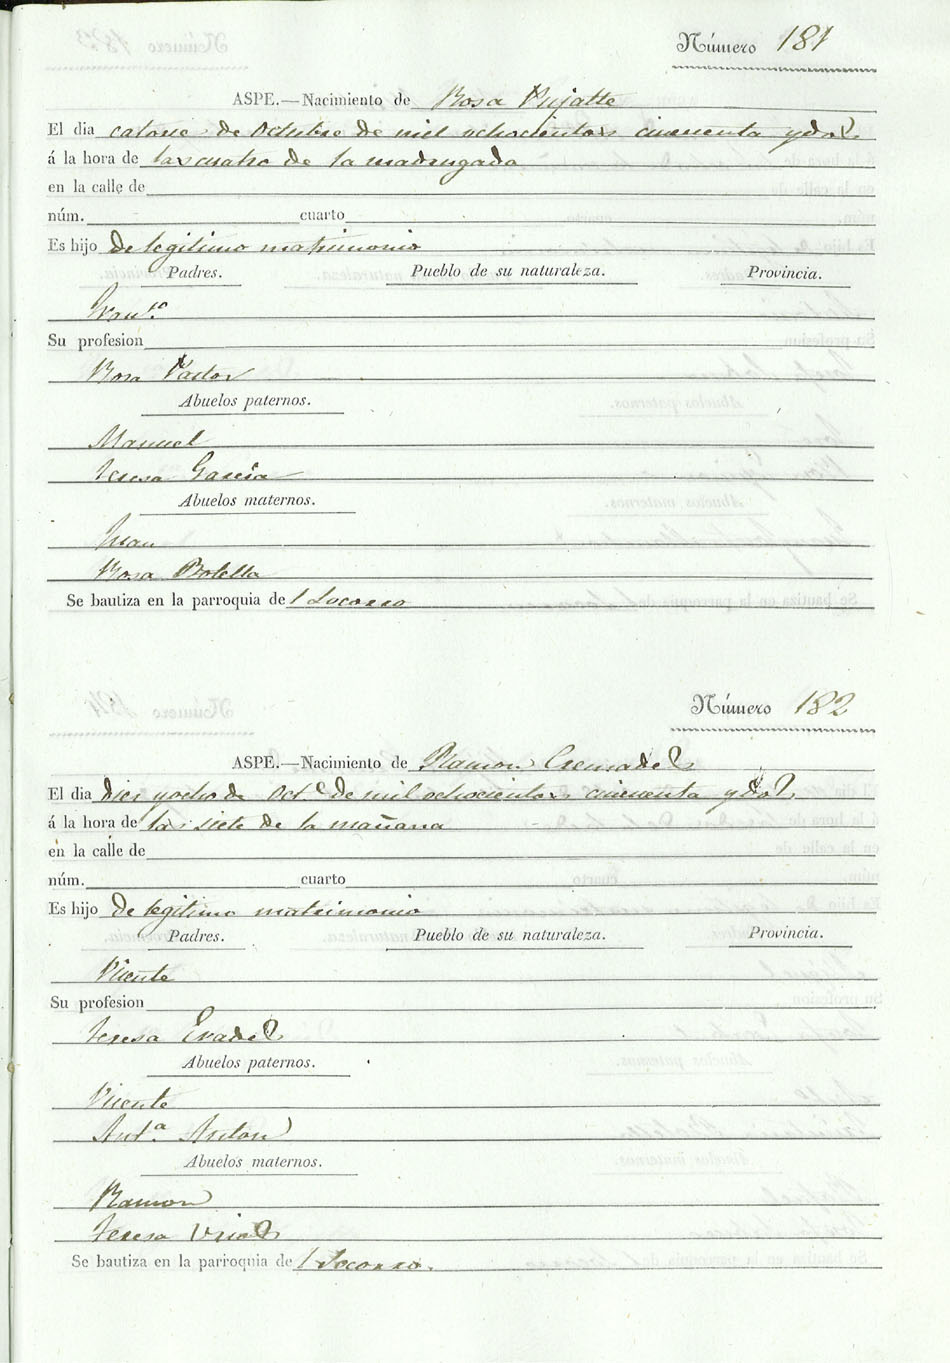 Número 181
ASPE.—Nacimiento de Rosa Pujalte
El dia catorce de Octubre de mil ochocientos cincuenta y dos
á la hora de las cuatro de la madrugada
en la calle de
núm. cuarto
Es hijo de legitimo matrimonio
Padres. Pueblo de su naturaleza. Provincia.
Fran.co
Su profesion
Rosa Pastor
Abuelos paternos.
Manuel
Teresa Garcia
Abuelos maternos.
Juan
Rosa Botella
Se bautiza en la parroquia del Socorro
Número 182
ASPE.—Nacimiento de Ramon Cremades
El dia diez y ocho de Oct.e de mil ochocientos cincuenta y dos
á la hora de las siete de la mañana
en la calle de
núm. cuarto
Es hijo de legitimo matrimonio
Padres. Pueblo de su naturaleza. Provincia.
Vicente
Su profesion
Teresa
Abuelos paternos.
Vicente
Ant.a Anton
Abuelos maternos.
Ramon
Teresa
Se bautiza en la parroquia del Socorro.